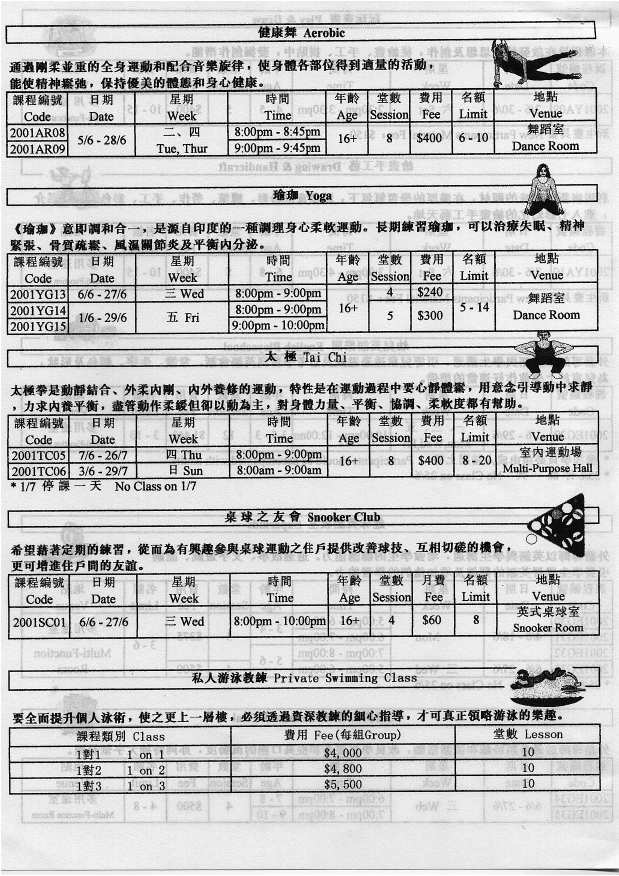 健康舞 Aerobic
通過剛柔並重的全身運動和配合音樂旋律，使身體各部位得到適量的活動，
能使精神鬆弛，保持優美的體態和身心健康。
課程編號 日期 星期 時間 年齡 堂數 費用 名額 地點
Code Date Week Time Age Session Fee Limit Venue
2001AR08 5/6 - 28/6 二、四 8:00pm - 8:45pm 16+ 8 $400 6 - 10 舞蹈室
2001AR09 Tue, Thur 9:00pm - 9:45pm Dance Room
瑜珈 Yoga
《瑜珈》意即調和合一，是源自印度的一種調理身心柔軟運動。長期練習瑜珈，可以治療失眠、精神
緊張、骨質疏鬆、風濕關節炎及平衡內分泌。
課程編號 日期 星期 時間 年齡 堂數 費用 名額 地點
Code Date Week Time Age Session Fee Limit Venue
2001YG13 6/6 - 27/6 三 Wed 8:00pm - 9:00pm 16+ 4 $240 5 - 14 舞蹈室
2001YG14 1/6 - 29/6 五 Fri 8:00pm - 9:00pm 5 $300 Dance Room
2001YG15 9:00pm - 10:00pm
太 極 Tai Chi
太極拳是動靜結合、外柔內剛、內外養修的運動，特性是在運動過程中要心靜體鬆，用意念引導動中求靜
，力求內養平衡，盡管動作柔緩但卻以動為主，對身體力量、平衡、協調、柔軟度都有幫助。
課程編號 日期 星期 時間 年齡 堂數 費用 名額 地點
Code Date Week Time Age Session Fee Limit Venue
2001TC05 7/6 - 26/7 四 Thu 8:00pm - 9:00pm 16+ 8 $400 8 - 20 室內運動場
2001TC06 3/6 - 29/7 日 Sun 8:00am - 9:00am Multi-Purpose Hall
* 1/7 停 課 一 天 No Class on 1/7
桌球之友會 Snooker Club
希望藉著定期的練習，從而為有興趣參與桌球運動之住戶提供改善球技、互相切磋的機會，
更可增進住戶間的友誼。
課程編號 日期 星期 時間 年齡 堂數 月費 名額 地點
Code Date Week Time Age Session Fee Limit Venue
2001SC01 6/6 - 27/6 三 Wed 8:00pm - 10:00pm 16+ 4 $60 8 英式桌球室
Snooker Room
私人游泳教練 Private Swimming Class
要全面提升個人泳術，使之更上一層樓，必須透過資深教練的細心指導，才可真正領略游泳的樂趣。
課程類別 Class 費用 Fee(每組Group) 堂數 Lesson
1對1 1 on 1 $4,000 10
1對2 1 on 2 $4,800 10
1對3 1 on 3 $5,500 10